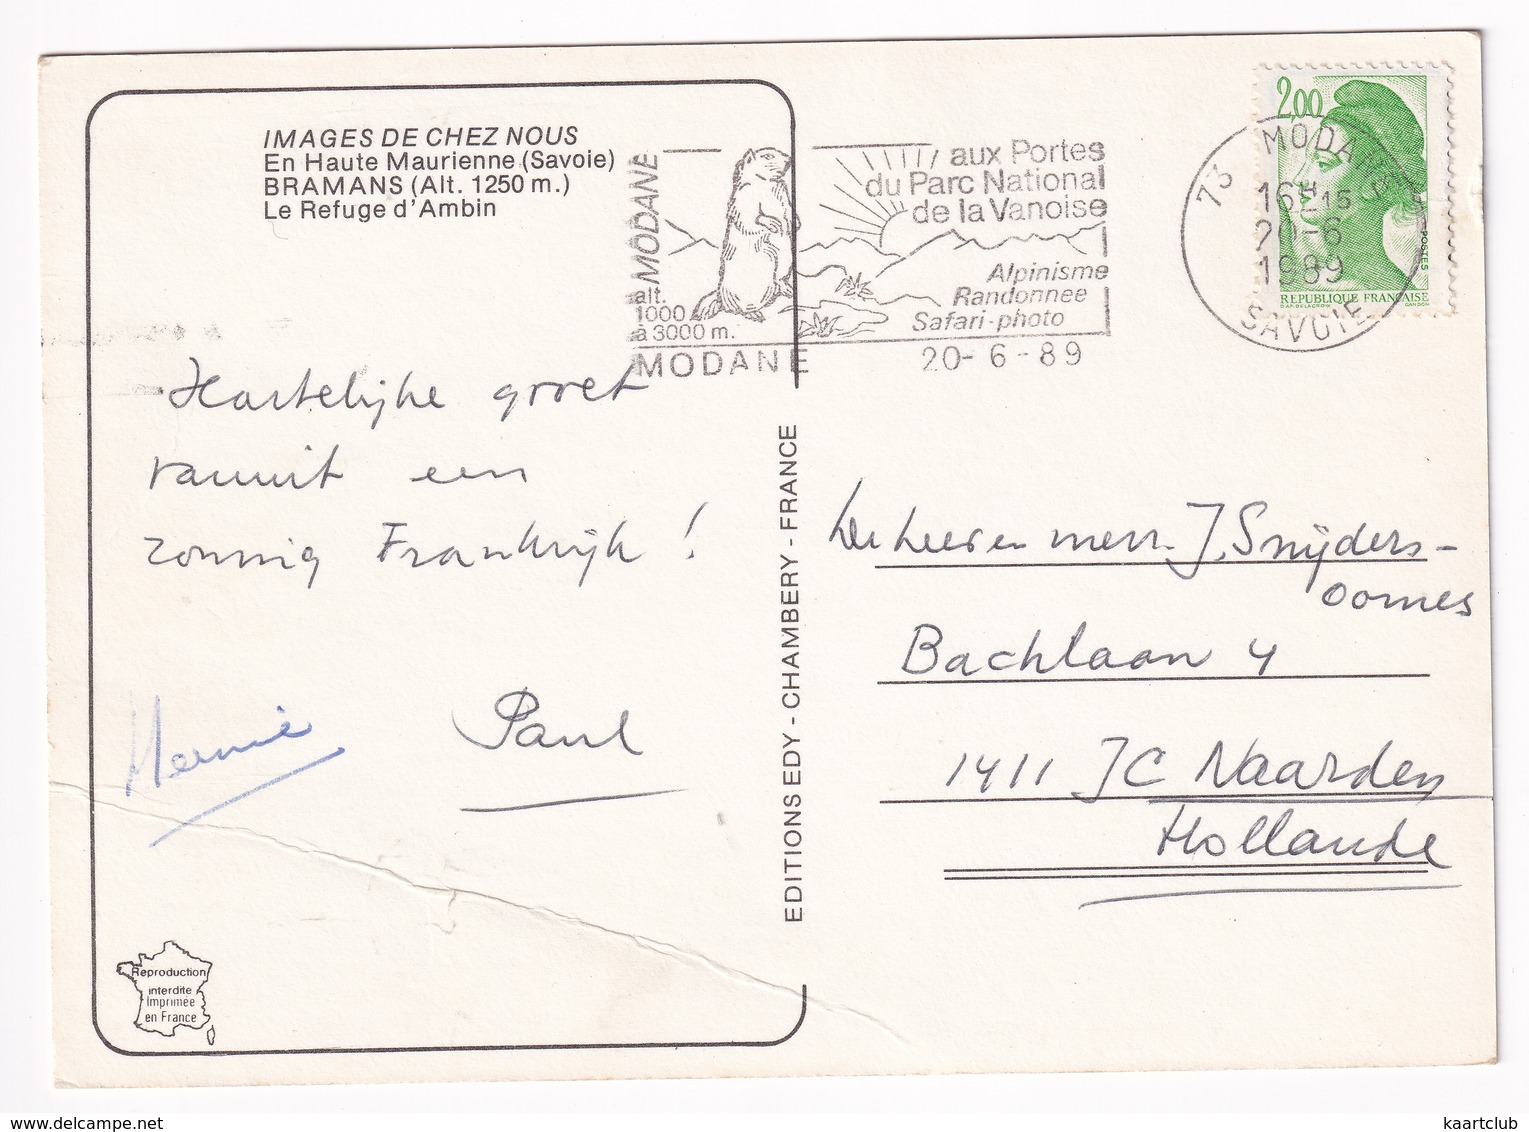 IMAGES DE CHEZ NOUS
En Haute Maurienne (Savoie)
BRAMANS (Alt. 1250 m.)
Le Refuge d'Ambin
MODANE
alt.
1000
à 3000 m.
MODANE
aux Portes
du Parc National
de la Vanoise
Alpinisme
Randonnee
Safari-photo
20-6-89
73 MODANE
16H15
20-6
1989
SAVOIE
2,00
POSTES
REPUBLIQUE FRANÇAISE
D'AP. DELACROIX GANDON
Hartelijke groet
vanuit een
zonnig Frankrijk!
Paul
EDITIONS EDY - CHAMBERY - FRANCE
De heer en mevr. J. Snijders-
Oomes
Bachlaan 4
1411 JC Naarden
Hollande
Reproduction
interdite
Imprimée
en France
www.delcampe.net
kaartclub